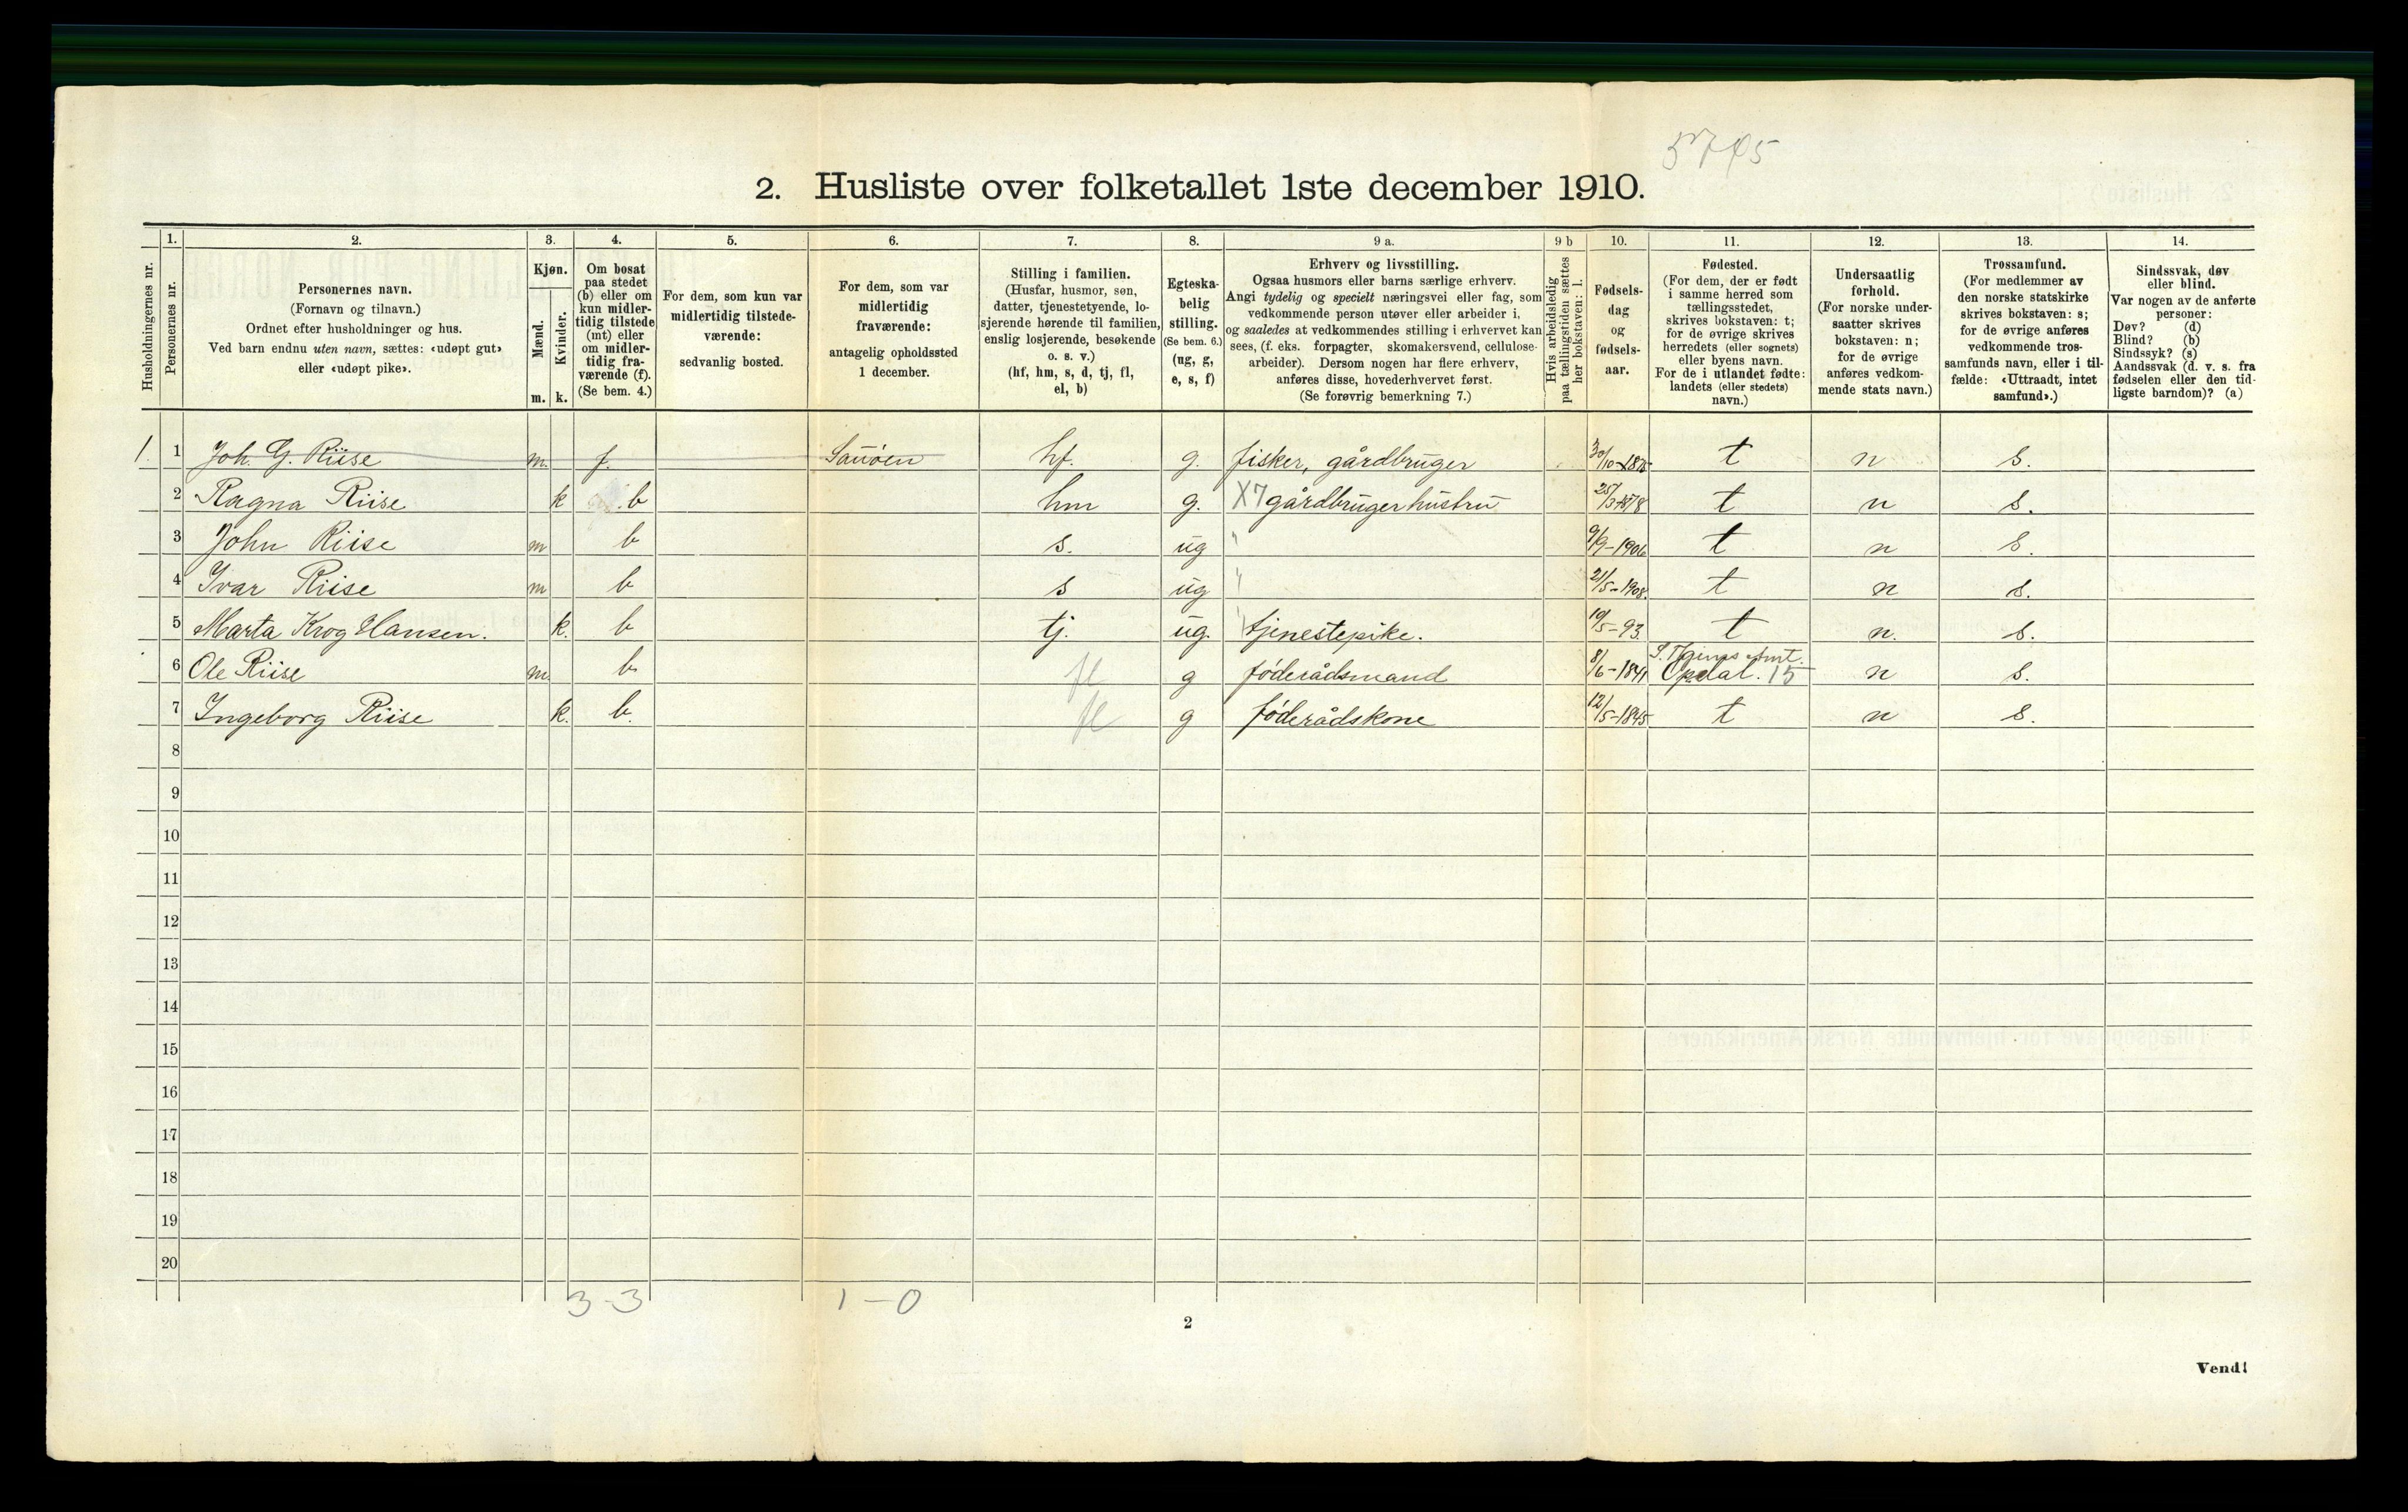 2. Husliste over folketallet 1ste december 1910.
Husholdningernes nr.
1.
Personernes nr.
2.
Personernes navn.
(Fornavn og tilnavn.)
Ordnet efter husholdninger og hus.
Ved barn endnu uten navn, sættes: «udøpt gut»
eller «udøpt pike».
3.
Kjøn.
Mænd.
Kvinder.
m. k.
4.
Om bosat
paa stedet
(b) eller om
kun midler-
tidig tilstede
(mt) eller
om midler-
tidig fra-
værende (f).
(Se bem. 4.)
5.
For dem, som kun var
midlertidig tilstede-
værende:
sedvanlig bosted.
6.
For dem, som var
midlertidig
fraværende:
antagelig opholdssted
1 december.
7.
Stilling i familien.
(Husfar, husmor, søn,
datter, tjenestetyende, lo-
sjerende hørende til familien,
enslig losjerende, besøkende
o. s. v.)
(hf, hm, s, d, tj, fl,
el, b)
8.
Egteska-
belig
stilling.
(Se bem. 6.)
(ug, g,
e, s, f)
9 a.
Erhverv og livsstilling.
Ogsaa husmors eller barns særlige erhverv.
Angi tydelig og specielt næringsvei eller fag, som
vedkommende person utøver eller arbeider i,
og saaledes at vedkommendes stilling i erhvervet kan
sees, (f. eks. forpagter, skomakersvend, cellulose-
arbeider). Dersom nogen har flere erhverv,
anføres disse, hovederhvervet først.
(Se forøvrig bemerkning 7.)
9 b
Hvis arbeidsledig
paa tællingstiden sættes
her bokstaven: l.
10.
Fødsels-
dag
og
fødsels-
aar.
11.
Fødested.
(For dem, der er født
i samme herred som
tællingsstedet,
skrives bokstaven: t;
for de øvrige skrives
herredets (eller sognets)
eller byens navn.
For de i utlandet fødte:
landets (eller stedets)
navn.)
12.
Undersaatlig
forhold.
(For norske under-
saatter skrives
bokstaven: n;
for de øvrige
anføres vedkom-
mende stats navn.)
13.
Trossamfund.
(For medlemmer av
den norske statskirke
skrives bokstaven: s;
for de øvrige anføres
vedkommende tros-
samfunds navn, eller i til-
fælde: «Uttraadt, intet
samfund».)
14.
Sindssvak, døv
eller blind.
Var nogen av de anførte
personer:
Døv? (d)
Blind? (b)
Sindssyk? (s)
Aandssvak (d. v. s. fra
fødselen eller den tid-
ligste barndom)? (a)
1. 1 Joh. G. Riise m. f. Sauöen hf. g. fisker, gårdbruger 30/10-1875 t n s.
2 Ragna Riise k b hm g. X7 gårdbrugerhustru 25/3-1878 t n s.
3 John Riise m b s. ug " 9/9-1906 t n s.
4 Ivar Riise m b s ug " 21/5-1908. t n s.
5 Marta Krog Hansen. k. b tj. ug. tjenestepike. 10/5-93 t n. s.
6 Ole Riise m b fl g föderådsmand 8/6-1841 Opdal. 15 n s.
7 Ingeborg Riise k. b. fl g föderådskone 12/5-1845 t n s.
8
9
10
11
12
13
14
15
16
17
18
19
20
3-3 1-0
2
Vend!